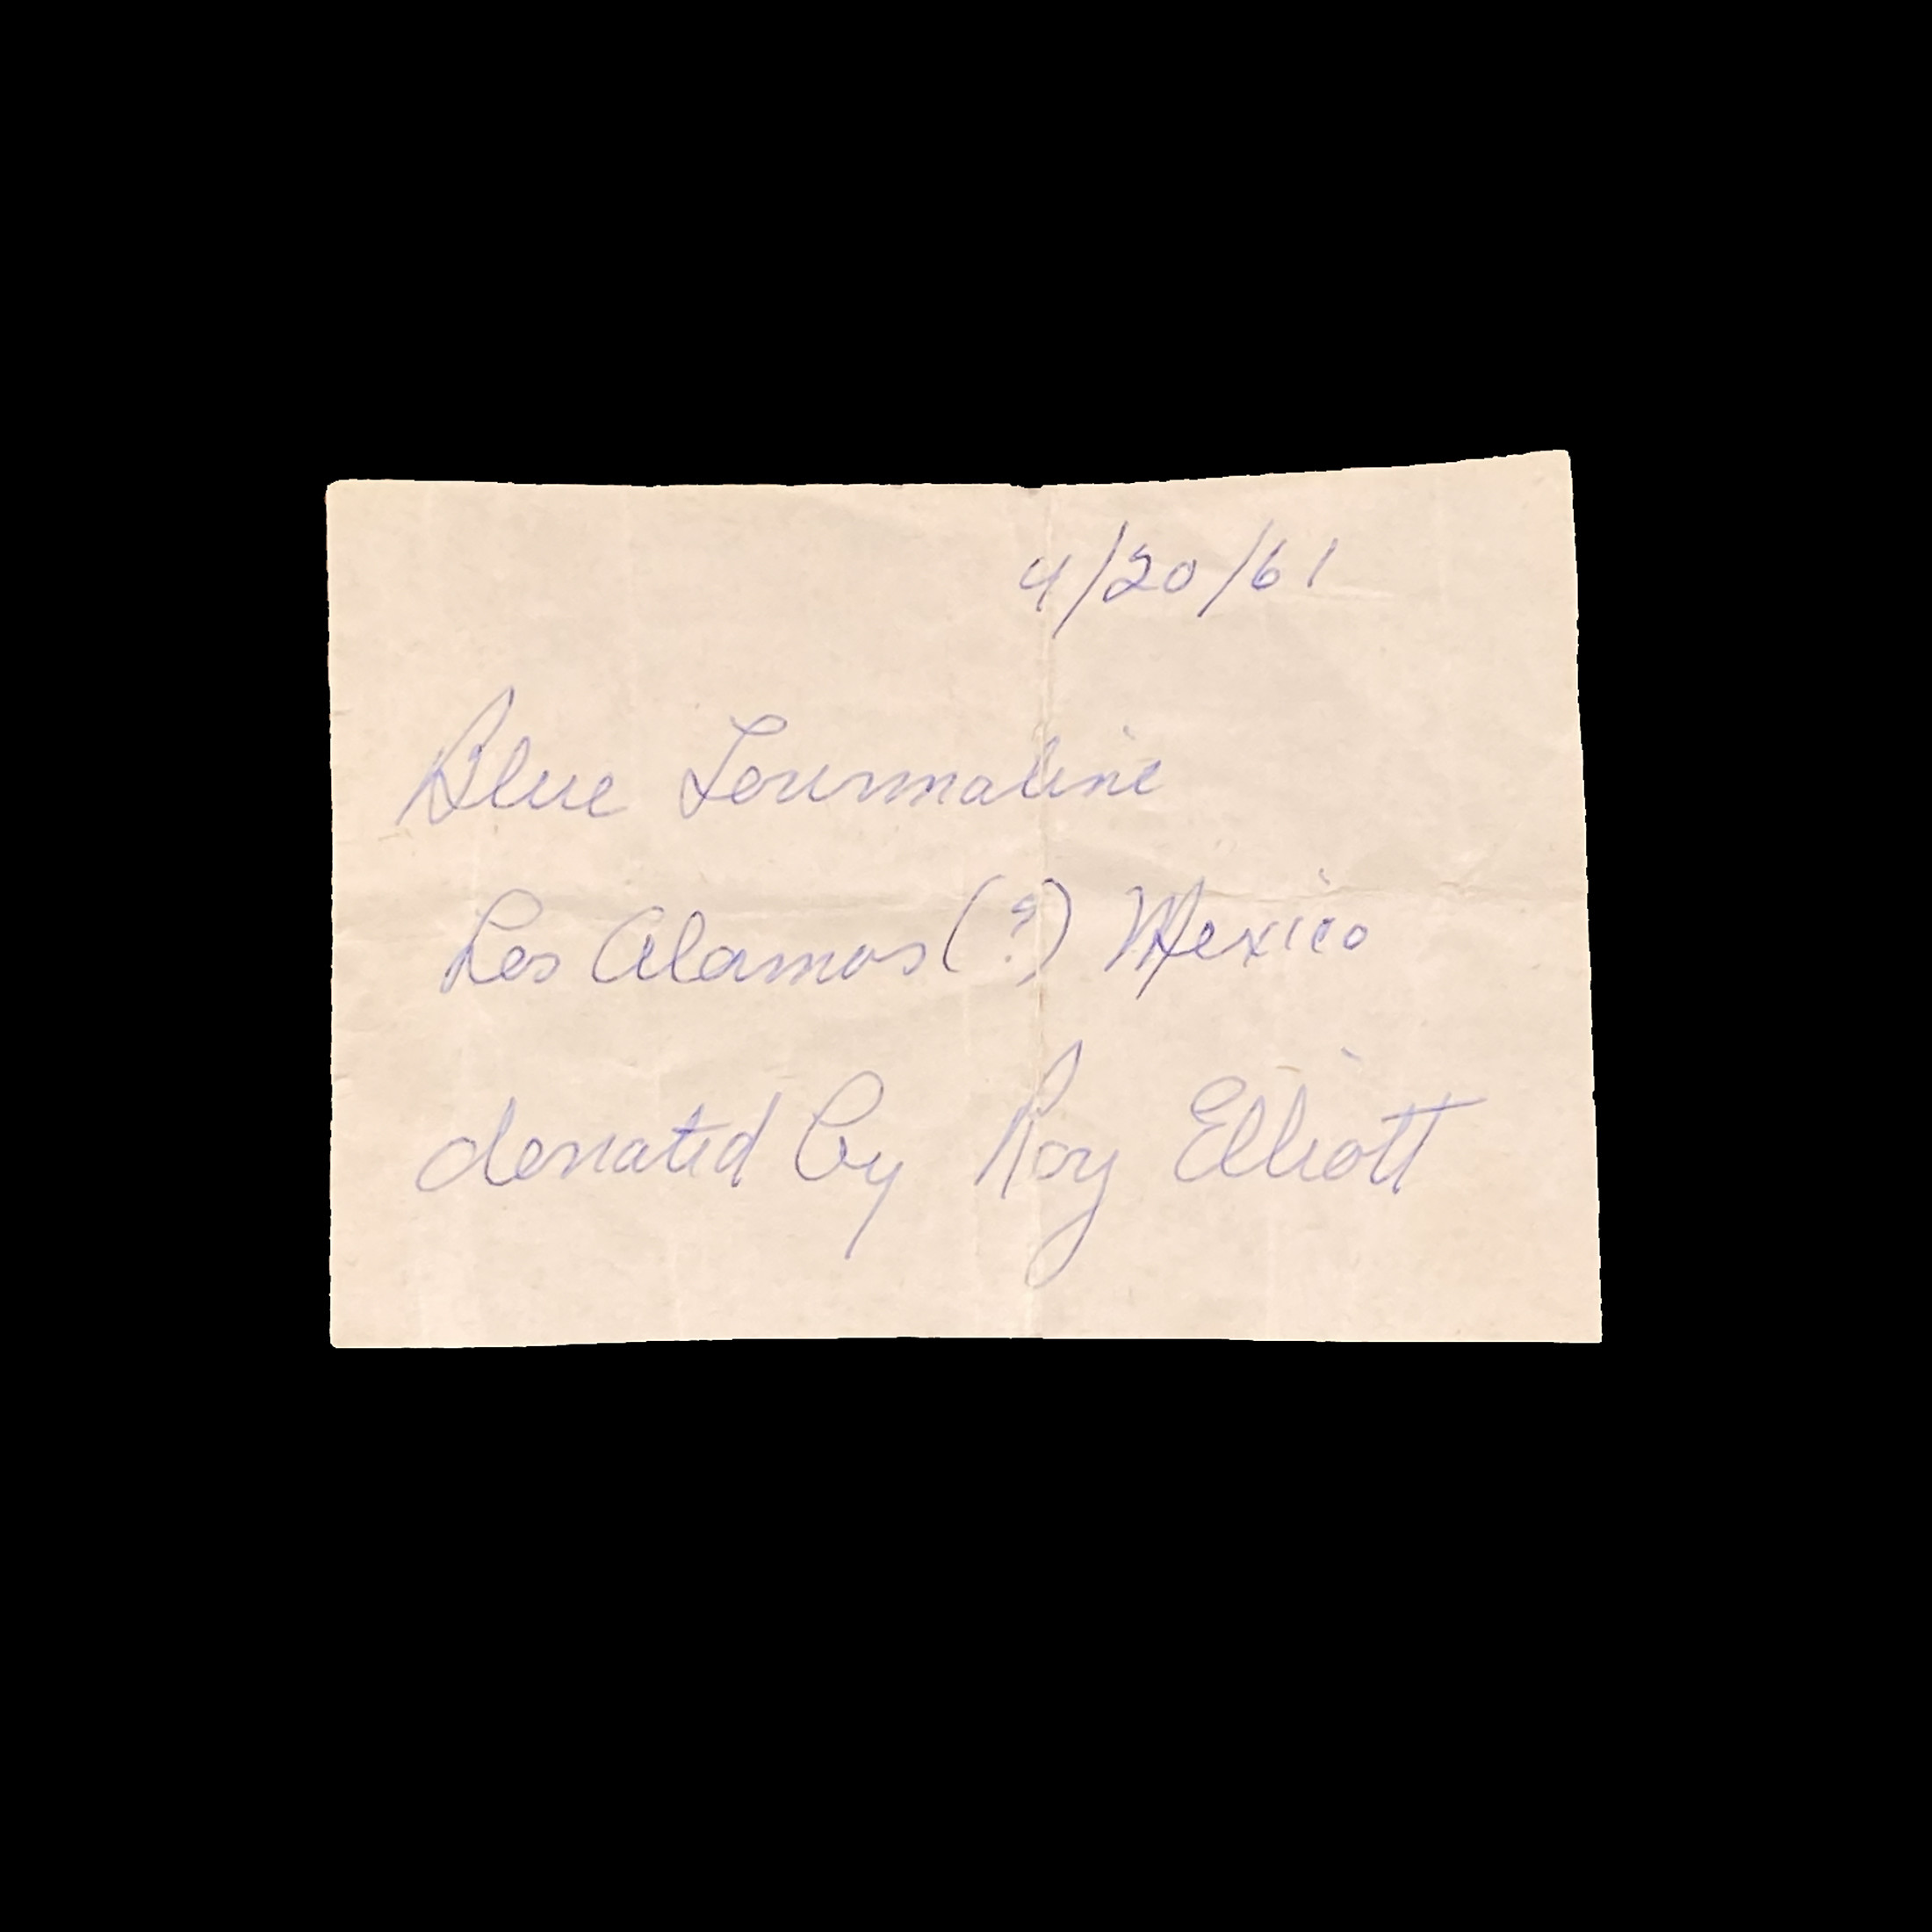 4/20/61
Blue Tourmaline
Los Alamos (?) Mexico
donated by Roy Elliott